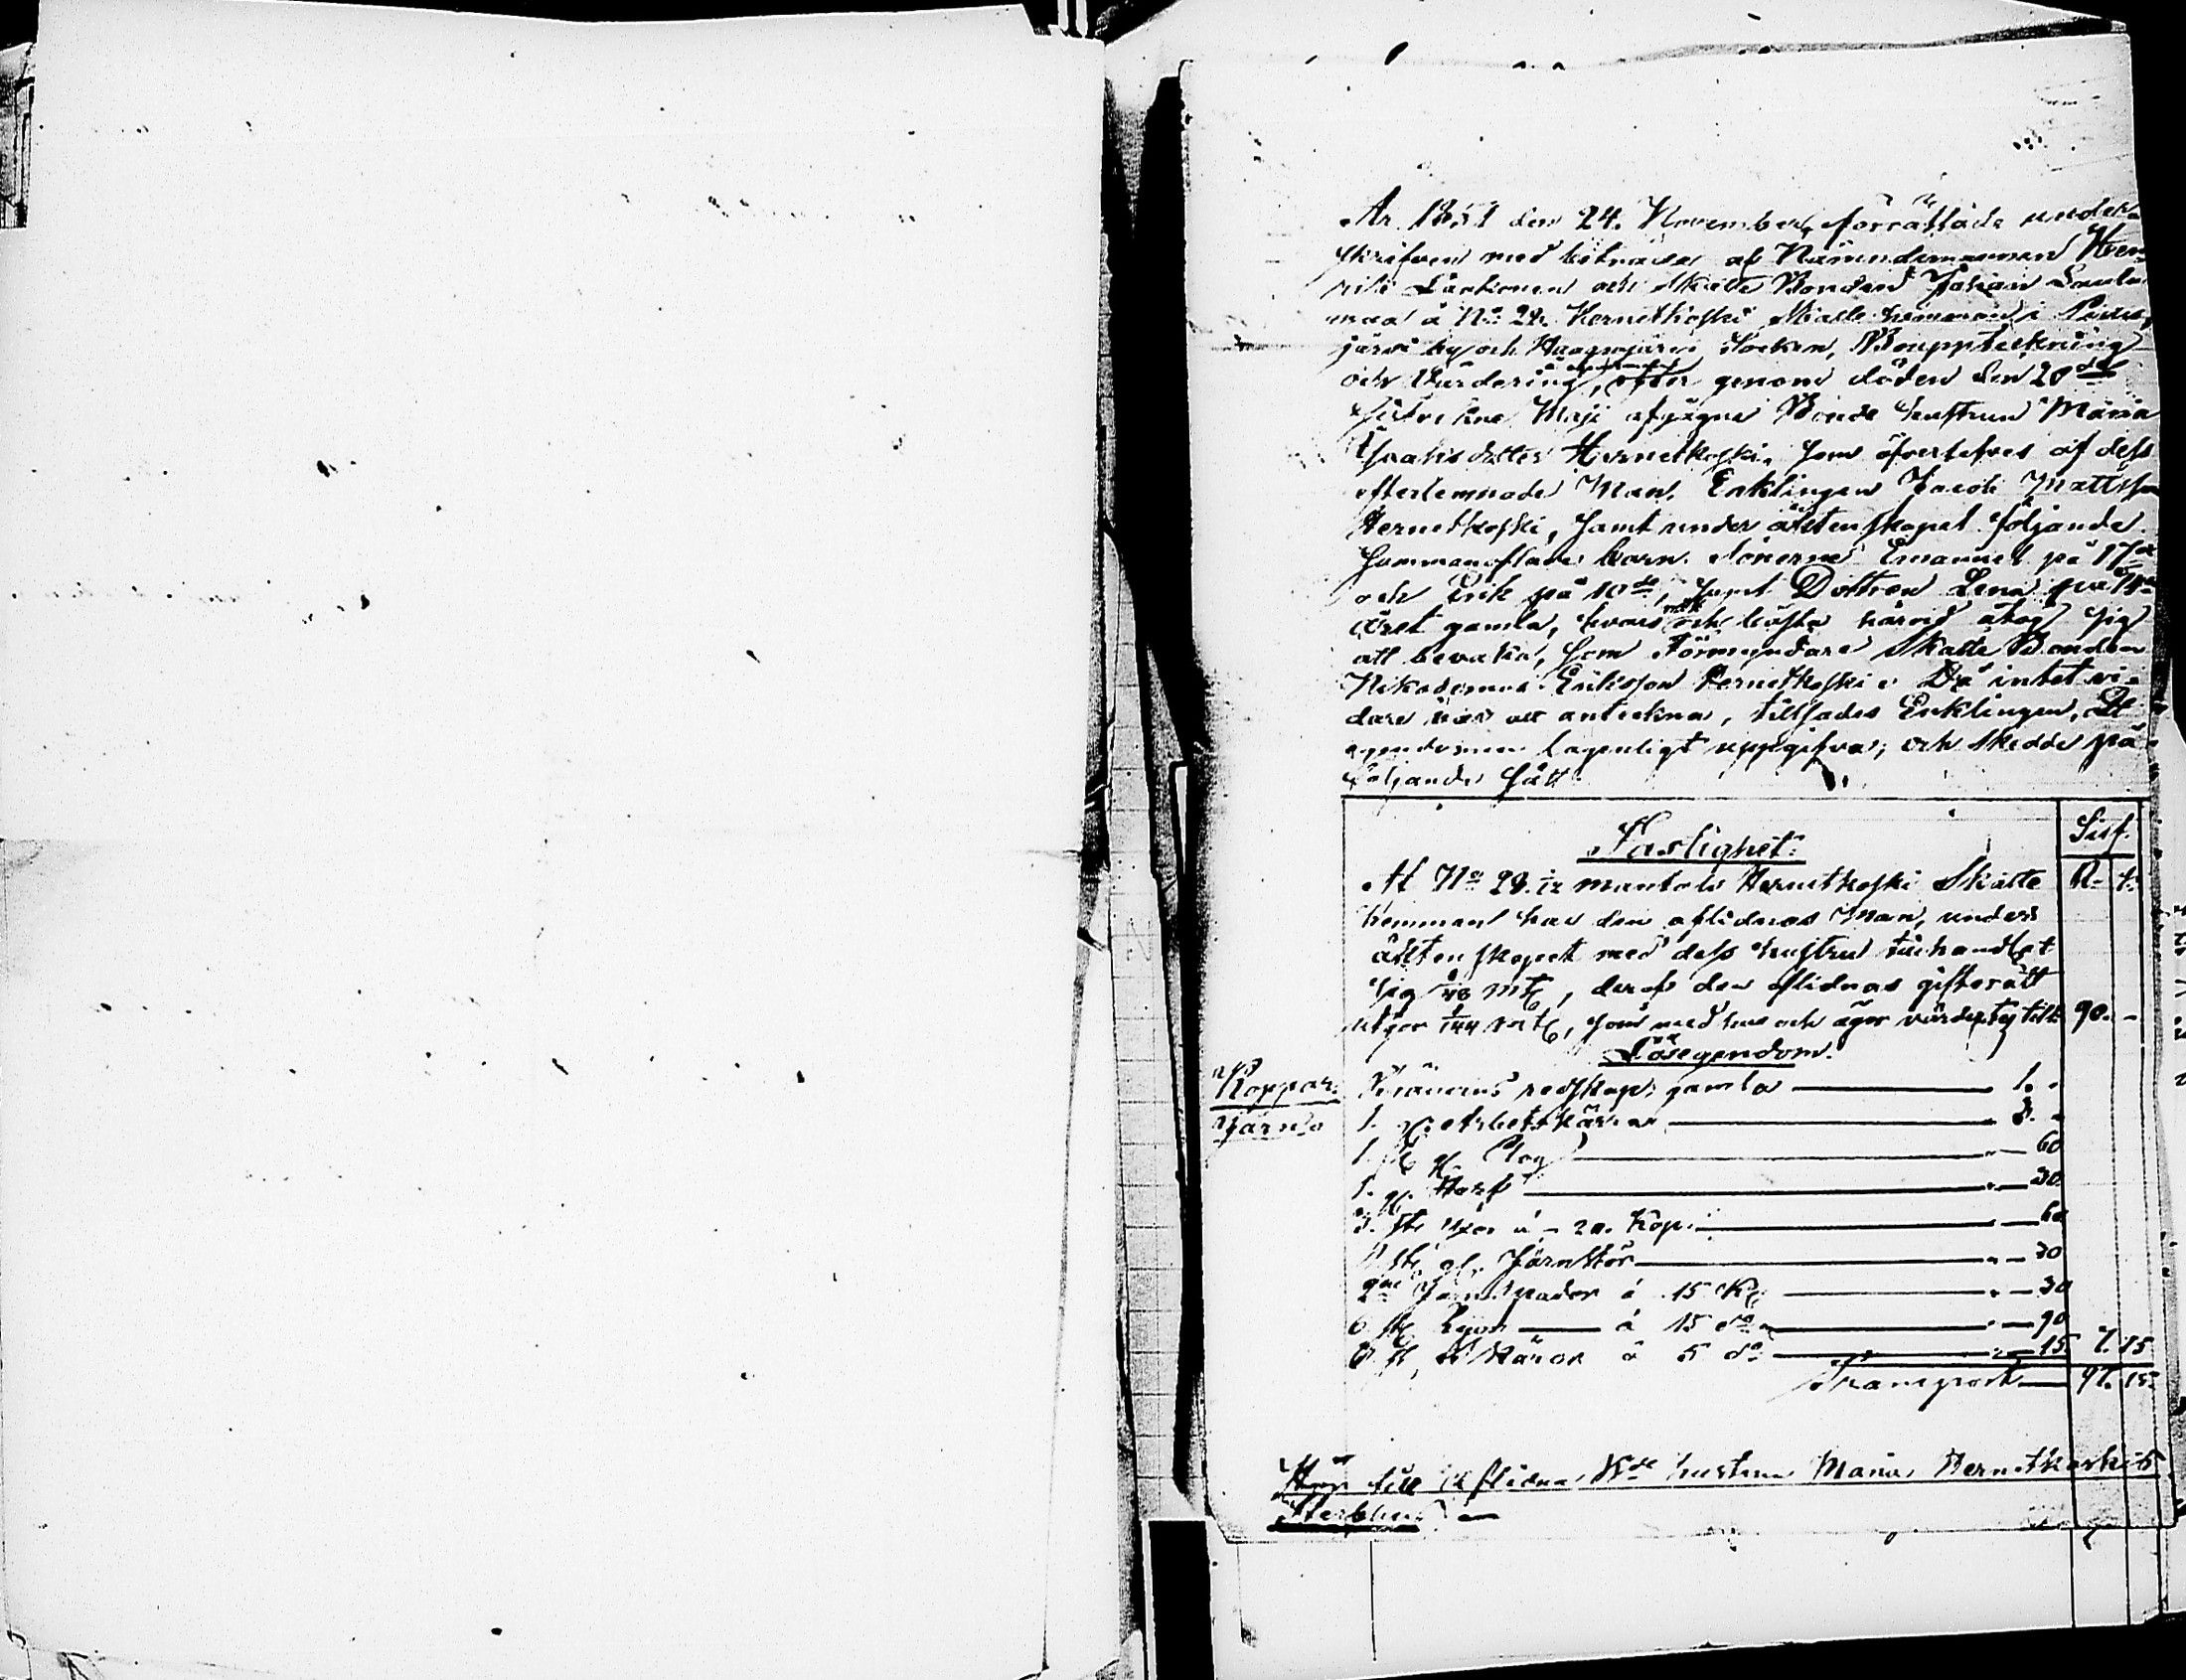 År 1851 den 24. November, förrättade under-
skrifven med biträde af Nämndemannen Hen-
rik och Skatte Bonden Johan
å No 28. Hernetkoski Skatte hemman i
järvi by och Socken, Bouppteckning
och Värdering, efter genom döden den 20de
sistvikne Maji afgågne Bonde hustrun Maria
Isaksdotter Hernetkoski, som öfverlefves af dess
efterlemnade Man, Enklingen Jacob Mattsson
Hernetkoski, samt under äktenskapet följande
sammanaflade barn. Sönerne Emanuel på 17de
och Erik på 10de, samt Dottren Lena på
året gamla, hvars rätt och bästa härvid åtog sig
att bevaka, som Förmyndare Skatte Bonden
Nikodemus Eriksson Hernetkoski. Då intet vi-
dare var att anteckna, tillsades Enklingen, att
egendomen lagenligt uppgifva; och skedde på
följande sätt
Silf.
Fastighet:
Af No 28. 1/12 mantals Hernetkoski Skatte R. k.
hemman har den aflidnas Man, under
äktenskapet med dess hustru tillhandlat
sig 1/48 mtl, deraf den aflidnas giftorätt
utgör 1/144 mtl, som med hus och ägor värderas till 90. -
Lösegendom.
Koppar: redskap, gamla 1. -
Järn: 1. gl. Arbetskärra 3. -
1. st gl. Plog " 60
1. gl. Harf " 30.
3. st Yxor á - 20. Kop. " 60
1 st gl. Järnstör " 30
2ne Järnspador á 15 K. " 30
6. st Lijor á 15 do " 90
3 st Skäror á 5 do " 15. 7. 15
Transport 97. 15.
Hör till aflidna Bde hustrun Maria Hernetkoskis
Sterbhus